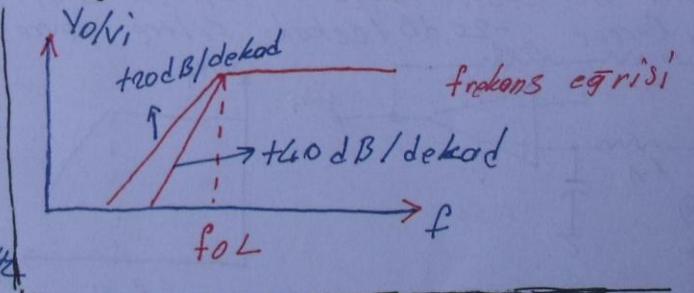 Vo/Vi
+20dB/dekad
frekans eğrisi
+40dB/dekad
foL
f